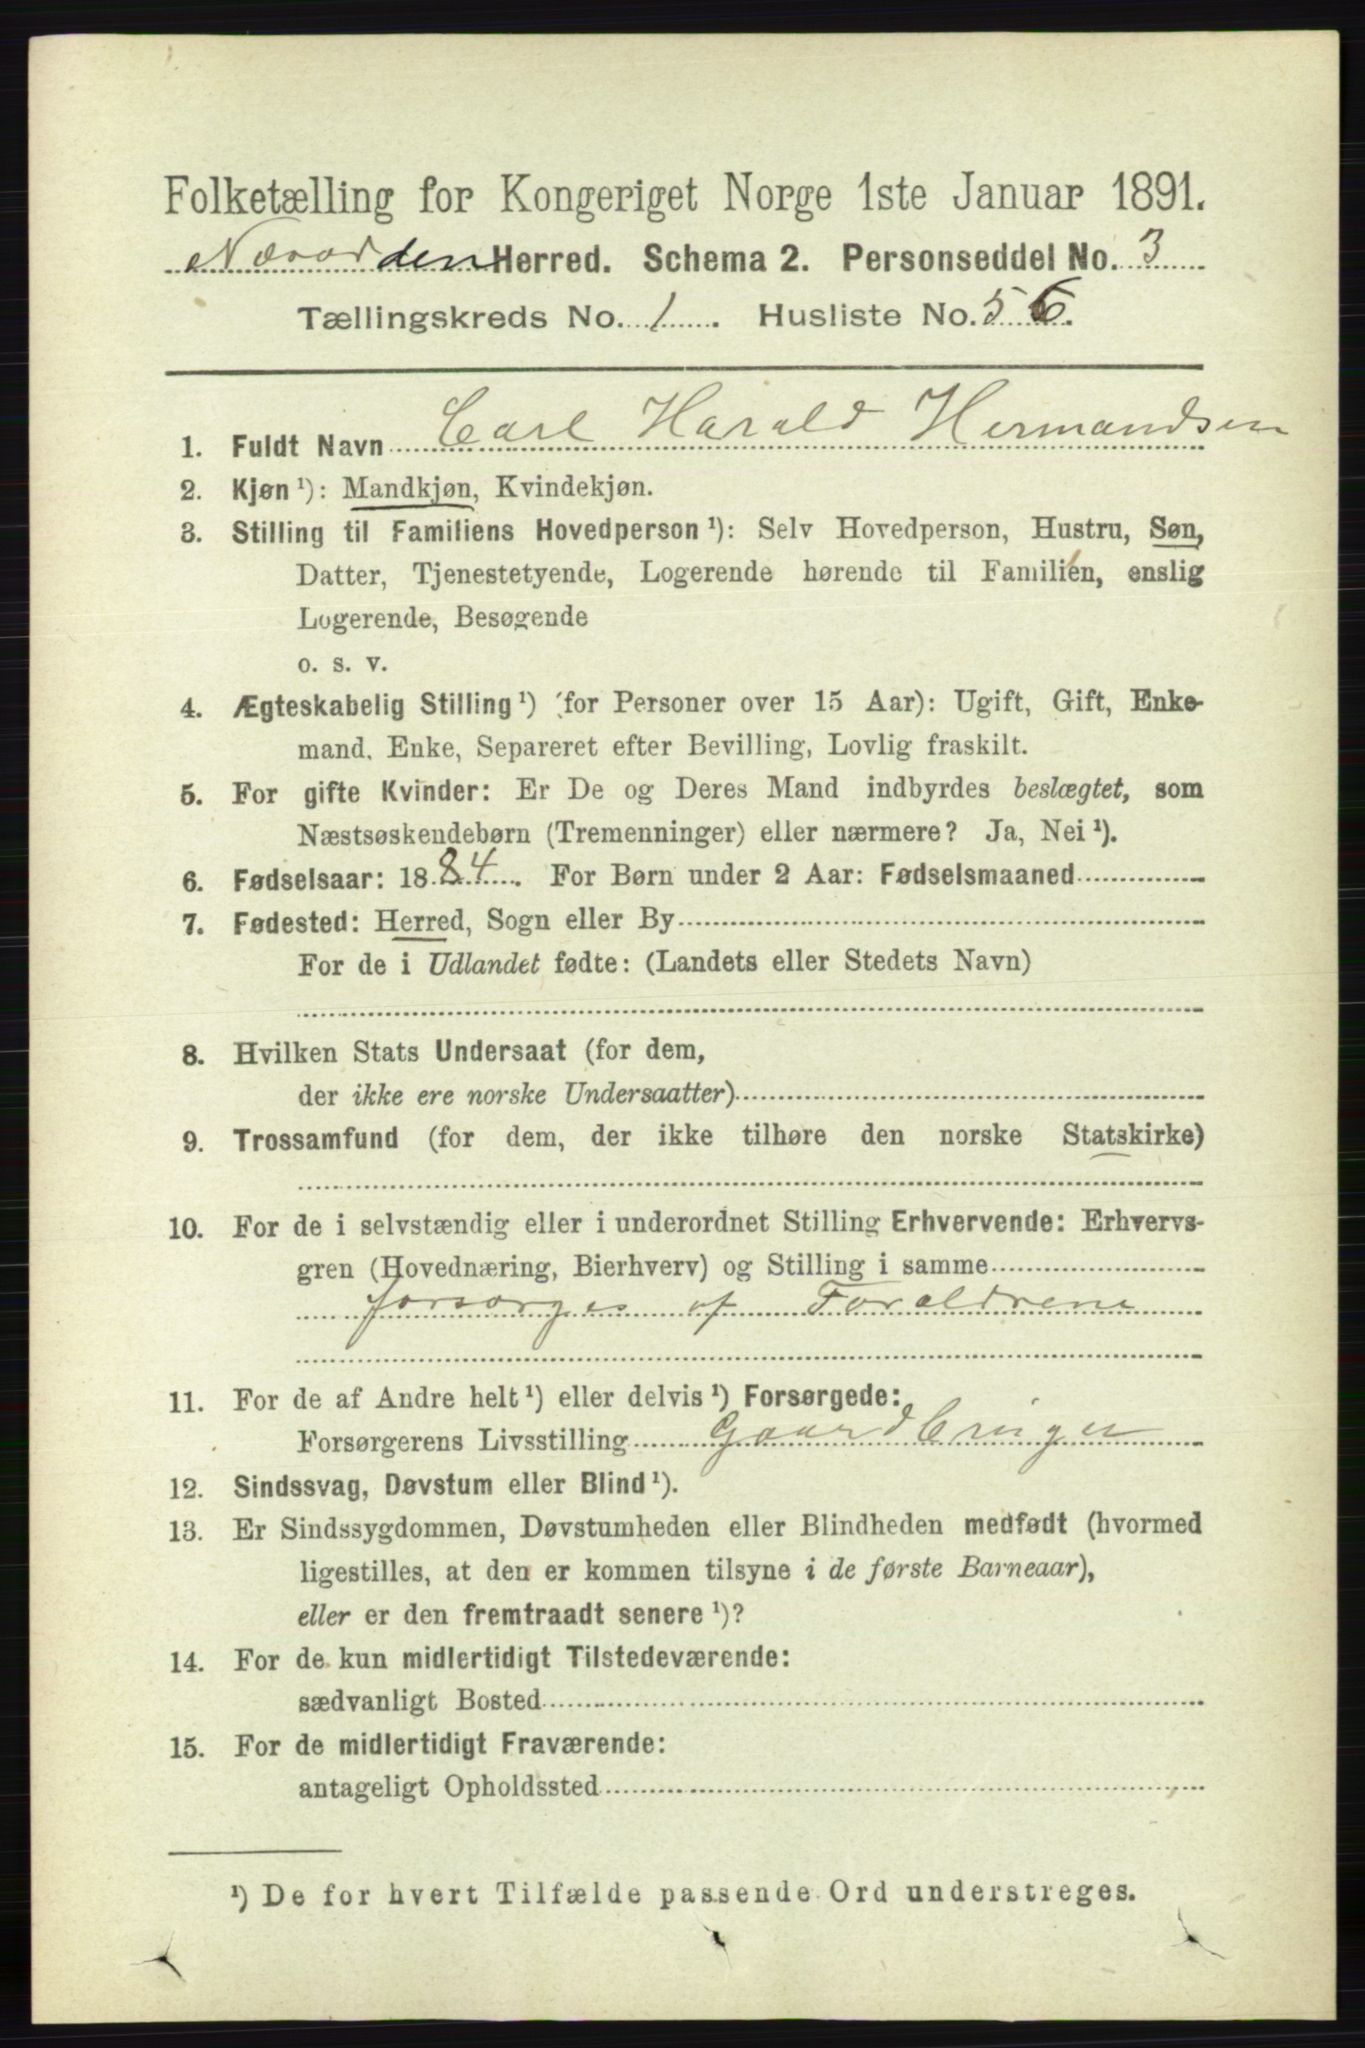 Folketælling for Kongeriget Norge 1ste Januar 1891.
Herred. Schema 2. Personseddel No. 3
Tællingskreds No. 1. Husliste No. 56.
1. Fuldt Navn Carl Harald Hermandsen
2. Kjøn ¹): Mandkjøn, Kvindekjøn.
3. Stilling til Familiens Hovedperson ¹): Selv Hovedperson, Hustru, Søn,
Datter, Tjenestetyende, Logerende hørende til Familien, enslig
Logerende, Besøgende
o. s. v.
4. Ægteskabelig Stilling ¹) (for Personer over 15 Aar): Ugift, Gift, Enke-
mand, Enke, Separeret efter Bevilling, Lovlig fraskilt.
5. For gifte Kvinder: Er De og Deres Mand indbyrdes beslægtet, som
Næstsøskendebørn (Tremenninger) eller nærmere? Ja, Nei ¹).
6. Fødselsaar: 1884. For Børn under 2 Aar: Fødselsmaaned
7. Fødested: Herred, Sogn eller By
For de i Udlandet fødte: (Landets eller Stedets Navn)
8. Hvilken Stats Undersaat (for dem,
der ikke ere norske Undersaatter)
9. Trossamfund (for dem, der ikke tilhøre den norske Statskirke)
10. For de i selvstændig eller i underordnet Stilling Erhvervende: Erhvervs-
gren (Hovednæring, Bierhverv) og Stilling i samme
forsørges af Foraldrene
11. For de af Andre helt ¹) eller delvis ¹) Forsørgede:
Forsørgerens Livsstilling
12. Sindssvag, Døvstum eller Blind ¹).
13. Er Sindssygdommen, Døvstumheden eller Blindheden medfødt (hvormed
ligestilles, at den er kommen tilsyne i de første Barneaar),
eller er den fremtraadt senere ¹)?
14. For de kun midlertidigt Tilstedeværende:
sædvanligt Bosted
15. For de midlertidigt Fraværende:
antageligt Opholdssted
¹) De for hvert Tilfælde passende Ord understreges.